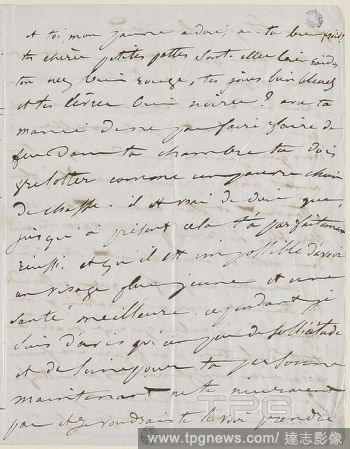 et toi, mon pauvre adoré, as-tu bien froid
tes chères petites pattes sont elles bien raides
ton nez bien rouge, tes joues bien bleues
et tes lèvres bien noires? avec ta
manie de ne pas faire faire de
feu dans ta chambre tu dois
grelotter comme un pauvre chien
de chasse. il est vrai de dire que,
jusqu'à présent cela t'a parfaitement
réussi et qu'il est impossible d'avoir
un visage plus jeune et une
santé meilleure. cependant je
suis d'avis qu'un peu de sollicitude
et de soin pour ta personne
maintenant ne te
pas et je voudrais te voir prendre
TPG
www.tpgnews.com / 達志影像